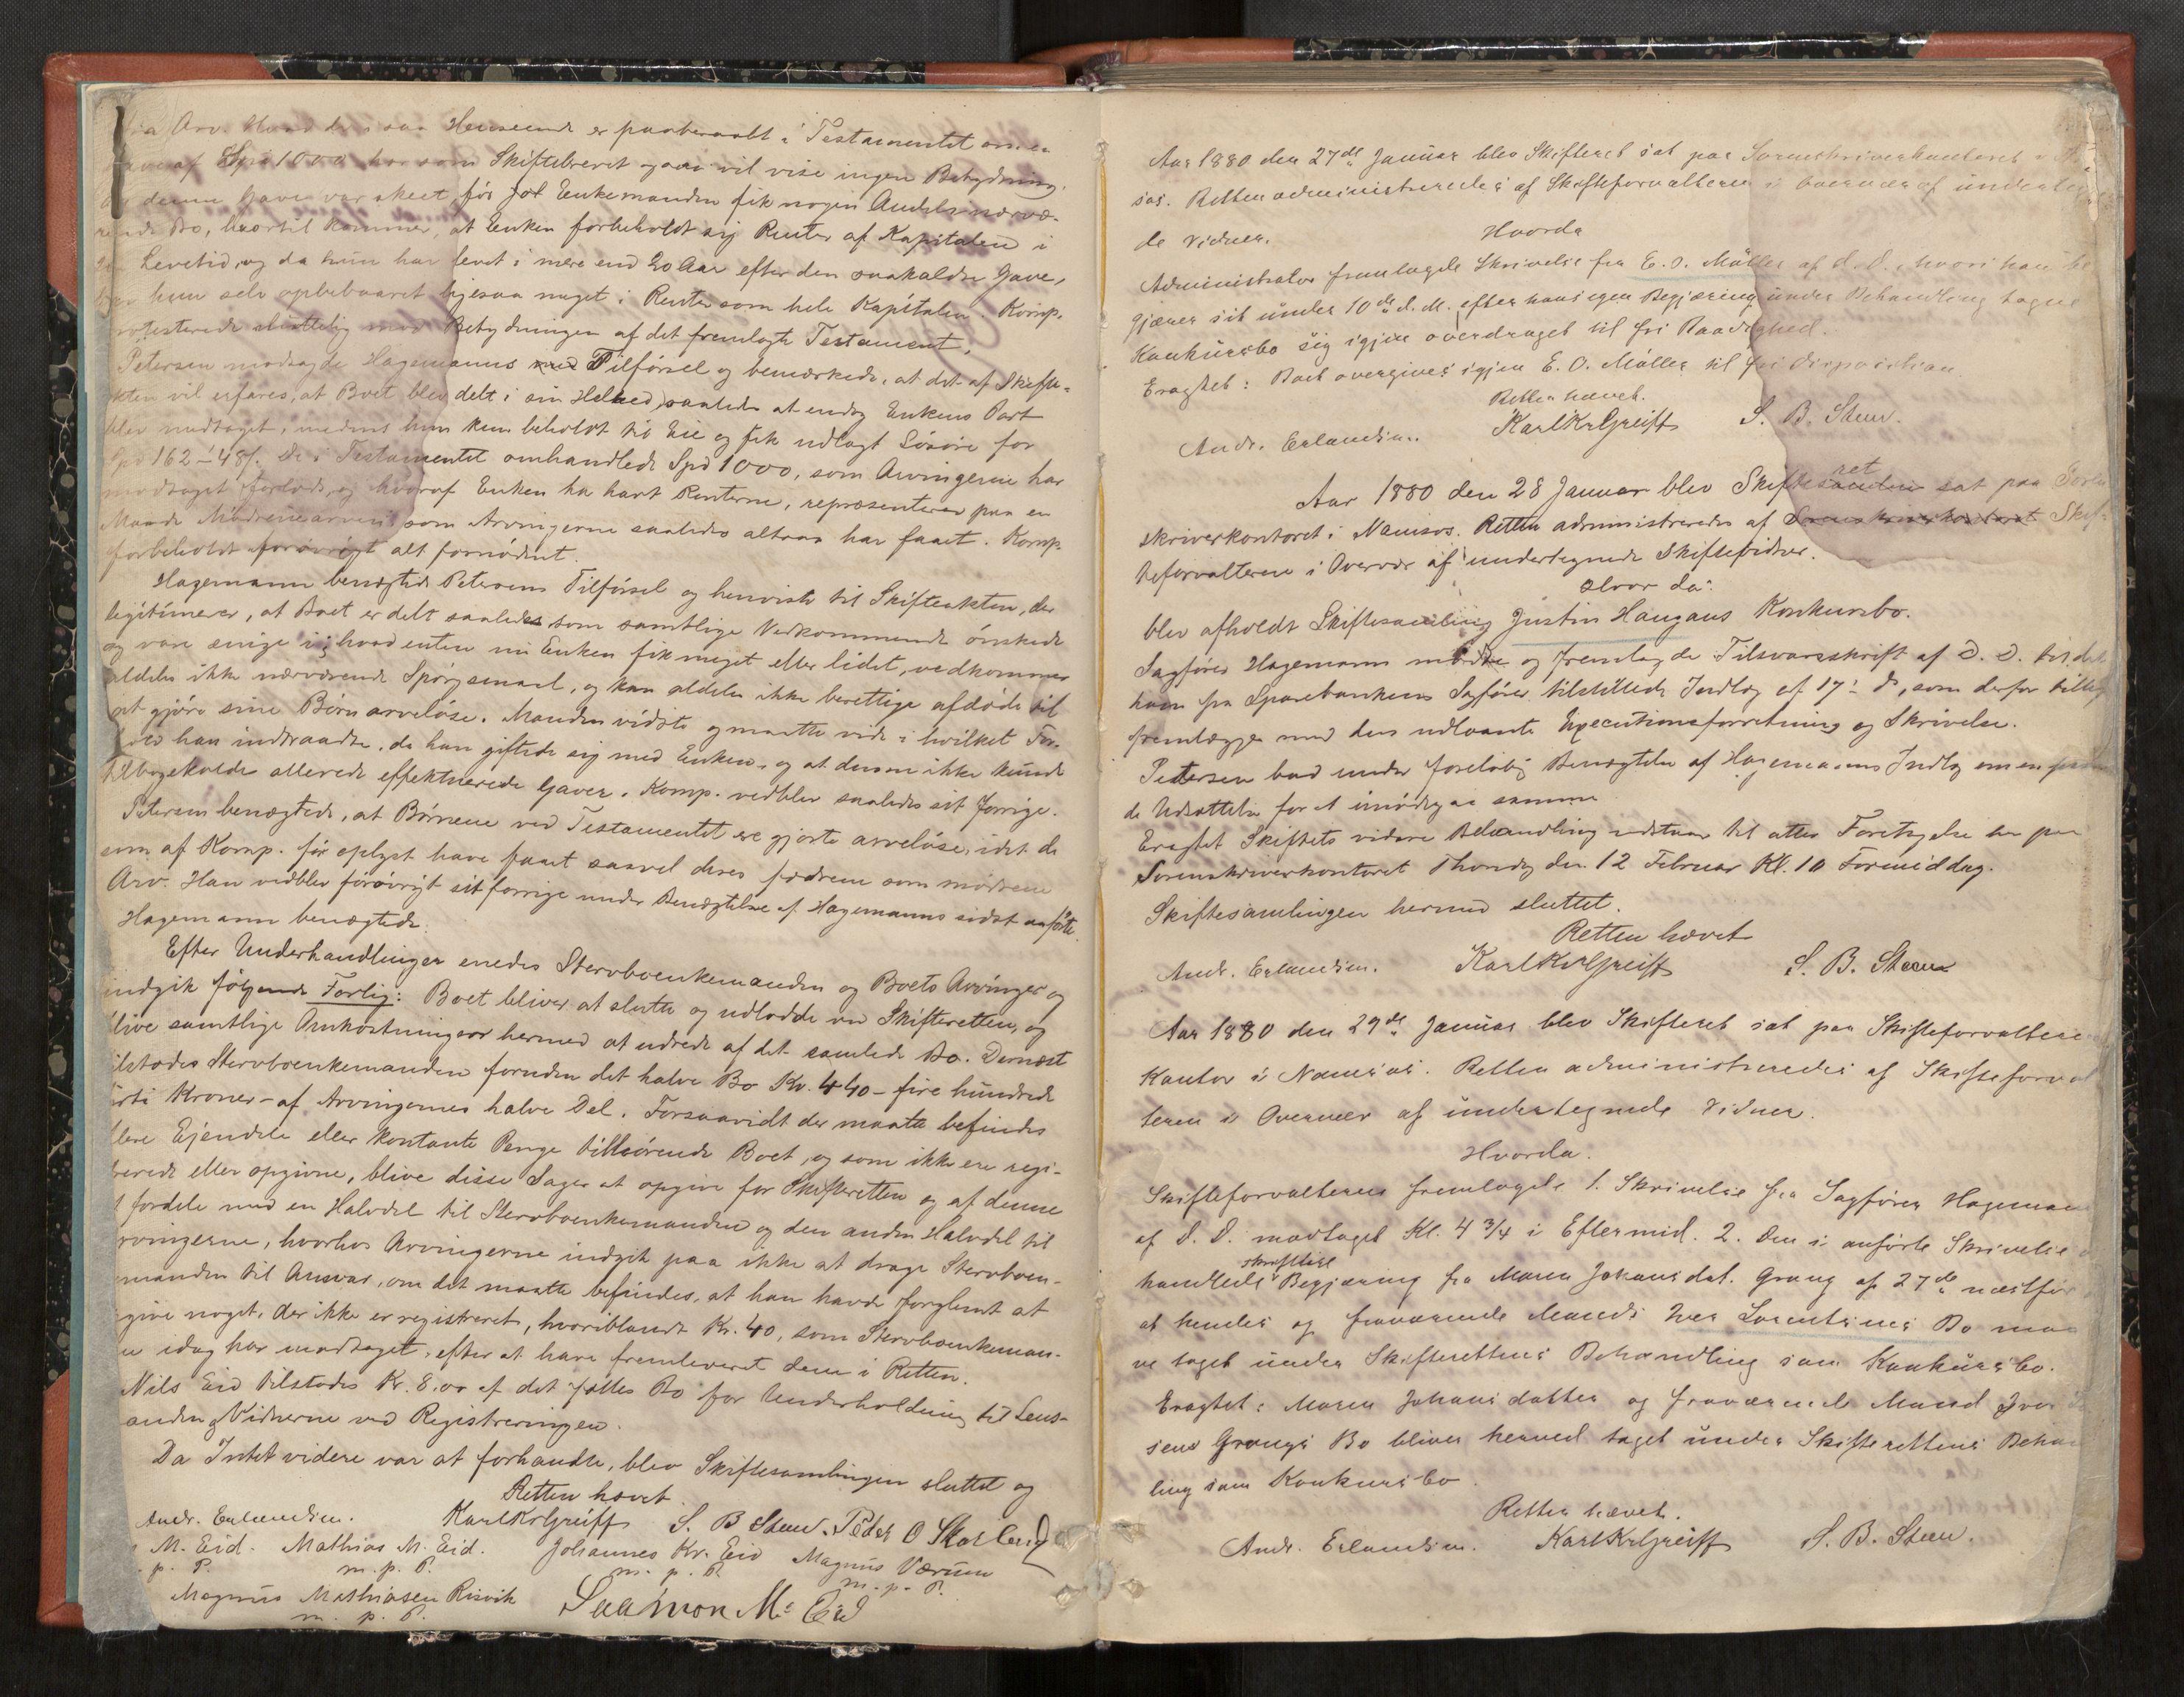 Arv. Hvad der saa Henseende er paaberaabt i Testamentet om en
Gave af Spd 1000 har som Skiftebrevet ogsaa vil vise ingen Betydning,
da denne Gave var skeet før Enkemanden fik nogen Andel i nærvæ-
rende Bo, hvortil kommer, at Enken forbeholdt sig Renter af Kapitalen i
sin Levetid, og da hun har levet i mere end 20 Aar efter den saakaldte Gave,
har hun selv oppebaaret ligesaa meget i Renter som hele Kapitalen. Komp.
protesterede sluttelig mod Betydningen af det fremlagte Testament.
Petersen modsagde Hagemanns Tilførsel og bemærkede, at det af Skifte-
akten vil erfares, at Boet blev delt i sin Helhed, saaledes at endog Enkens Part
blev medtaget, medens hun kun beholdt til Eie og fik udlagt Løsøre for
Spd 162-48 s. De i Testamentet omhandlede Spd 1000, som Arvingerne har
modtaget forlods, og hvoraf Enken har havt Renterne, repræsenterer paa en
Maade Mødrenearven som Arvingerne saaledes altsaa har faaet. Komp.
forbeholdt forøvrigt alt fornødent.
Hagemann benægtede Petersens Tilførsel og henviste til Skifteakten, der
legitimerer, at Boet er delt saaledes som samtlige Vedkommende ønskede
og vare enige i; hvad enten nu Enken fik meget eller lidet, vedkommer
aldeles ikke nærværende Spørgsmaal, og kan aldeles ikke berettige afdøde til
at gjøre sine Børn arveløse. Manden vidste og maatte vide i hvilket For-
hold han indtraadte, da han giftede sig med Enken, og at denne ikke kunde
tilbagekalde allerede effektuerede Gaver. Komp. vedblev saaledes sit forrige.
Petersen benægtede, at Børnene ved Testamentet ere gjorte arveløse, idet de
som af Komp. før oplyst have faaet saavel deres fædrene som mødrene
Arv. Han vedblev forøvrigt sit forrige under Benægtelse af Hagemanns sidst anførte.
Hagemann benægtede.
Efter Underhandlinger enedes Stervboenkemanden og Boets Arvinger og
indgik følgende Forlig: Boet bliver at slutte og udlodde ved Skifteretten, og
blive samtlige Omkostninger hermed at udrede af det samlede Bo. Dernæst
tilstodes Stervboenkemanden foruden det halve Bo Kr. 440 - fire hundrede
førti Kroner - af Arvingernes halve Del. Forsaavidt der maatte befindes
flere Ejendele eller kontante Penge tilhørende Boet, og som ikke ere regi-
strerede eller opgivne, blive disse Sager at opgive for Skifteretten og af denne
at fordele med en Halvdel til Stervboenkemanden og den anden Halvdel til
Arvingerne, hvorhos Arvingerne indgik paa ikke at drage Stervboen-
kemanden til Ansvar, om det maatte befindes, at han havde forglemt at
opgive noget, der ikke er registreret, hvoriblandt Kr. 40, som Stervboenkeman-
den idag har modtaget, efter at have fremleveret dem i Retten.
Nils Eid tilstodes Kr. 8.00 af det fælles Bo for Underholdning til Lens-
manden og Vidnerne ved Registreringen.
Da Intet videre var at forhandle, blev Skiftesamlingen sluttet og
Retten hævet.
Andr. Erlandsen. Karl Kr Greiff S. B Steen. Peder O Skarland
M. Eid. Mathias M. Eid. Johannes Kr. Eid Magnus Værum
p. P. m. p. P. m. p. P. m. p. P.
Magnus Mathiasen Risvik Saamon M. Eid
m. p. P.
Aar 1880 den 27de Januar blev Skifteret sat paa Sorenskriverkontoret i Nam-
sos. Retten administreredes af Skifteforvalteren i Overvær af undertegne-
de Vidner.
Hvorda
Administrator fremlagde Skrivelse fra E. O. Müller af d. D., hvori han be-
gjærer sit under 10de d. M. efter hans egen Begjæring under Behandling tagne
Konkursbo sig igjen overdraget til fri Raadighed.
Eragtet: Boet overgives igjen E. O. Müller til fri Disposition.
Retten hævet.
Andr. Erlandsen. Karl Kr Greiff S. B. Steen.
Aar 1880 den 28 Januar blev Skifteret sat paa Soren-
skriverkontoret i Namsos. Retten administreredes af Sorenskriverkontoret Skif-
teforvalteren i Overvær af undertegnede Skiftevidner.
Hvor da:
blev afholdt Skiftesamling Justin Haugans Konkursbo.
Sagfører Hagemann mødte og fremlagde Tilsvarsskrift af D. D. til det
ham fra Sparebankens Sagfører tilstillede Indlæg af 17de ds, som derfor tillige
fremlægges med den udlaante Executionsforretning og Skrivelse.
Petersen bad under foreløbig Benægtelse af Hagemanns Indlæg om en
de Udsættelse for at imødegaa samme.
Eragtet Skiftets videre Behandling udstaar til atter Foretagelse her paa
Sorenskriverkontoret Thorsdag den 12 Februar Kl. 10 Formiddag.
Skiftesamlingen hermed sluttet.
Retten hævet
Andr. Erlandsen. Karl Kr Greiff S. B. Steen
Aar 1880 den 29de Januar blev Skifteret sat paa Skifteforvaltere
Kontor i Namsos. Retten administreredes af Skifteforval-
teren i Overvær af undertegnede Vidner.
Hvorda.
Skifteforvalteren fremlagde 1. Skrivelse fra Sagfører Hagemann
af D. D. modtaget Kl. 4 3/4 i Eftermid. 2. Den i anførte Skrivelse
handlede skriftlige Begjæring fra Maren Johansdat. Grang af 27de næstfør
at hendes og fraværende Mands Iver Lorentsens Bo maa
ve taget under Skifterettens Behandling som Konkursbo.
Eragtet: Maren Johansdatter og fraværende Mand Iver
sens Grangs Bo bliver herved taget under Skifterettens Behand
ling som Konkursbo.
Retten hævet.
Andr. Erlandsen. Karl Kr Greiff S. B. Steen.